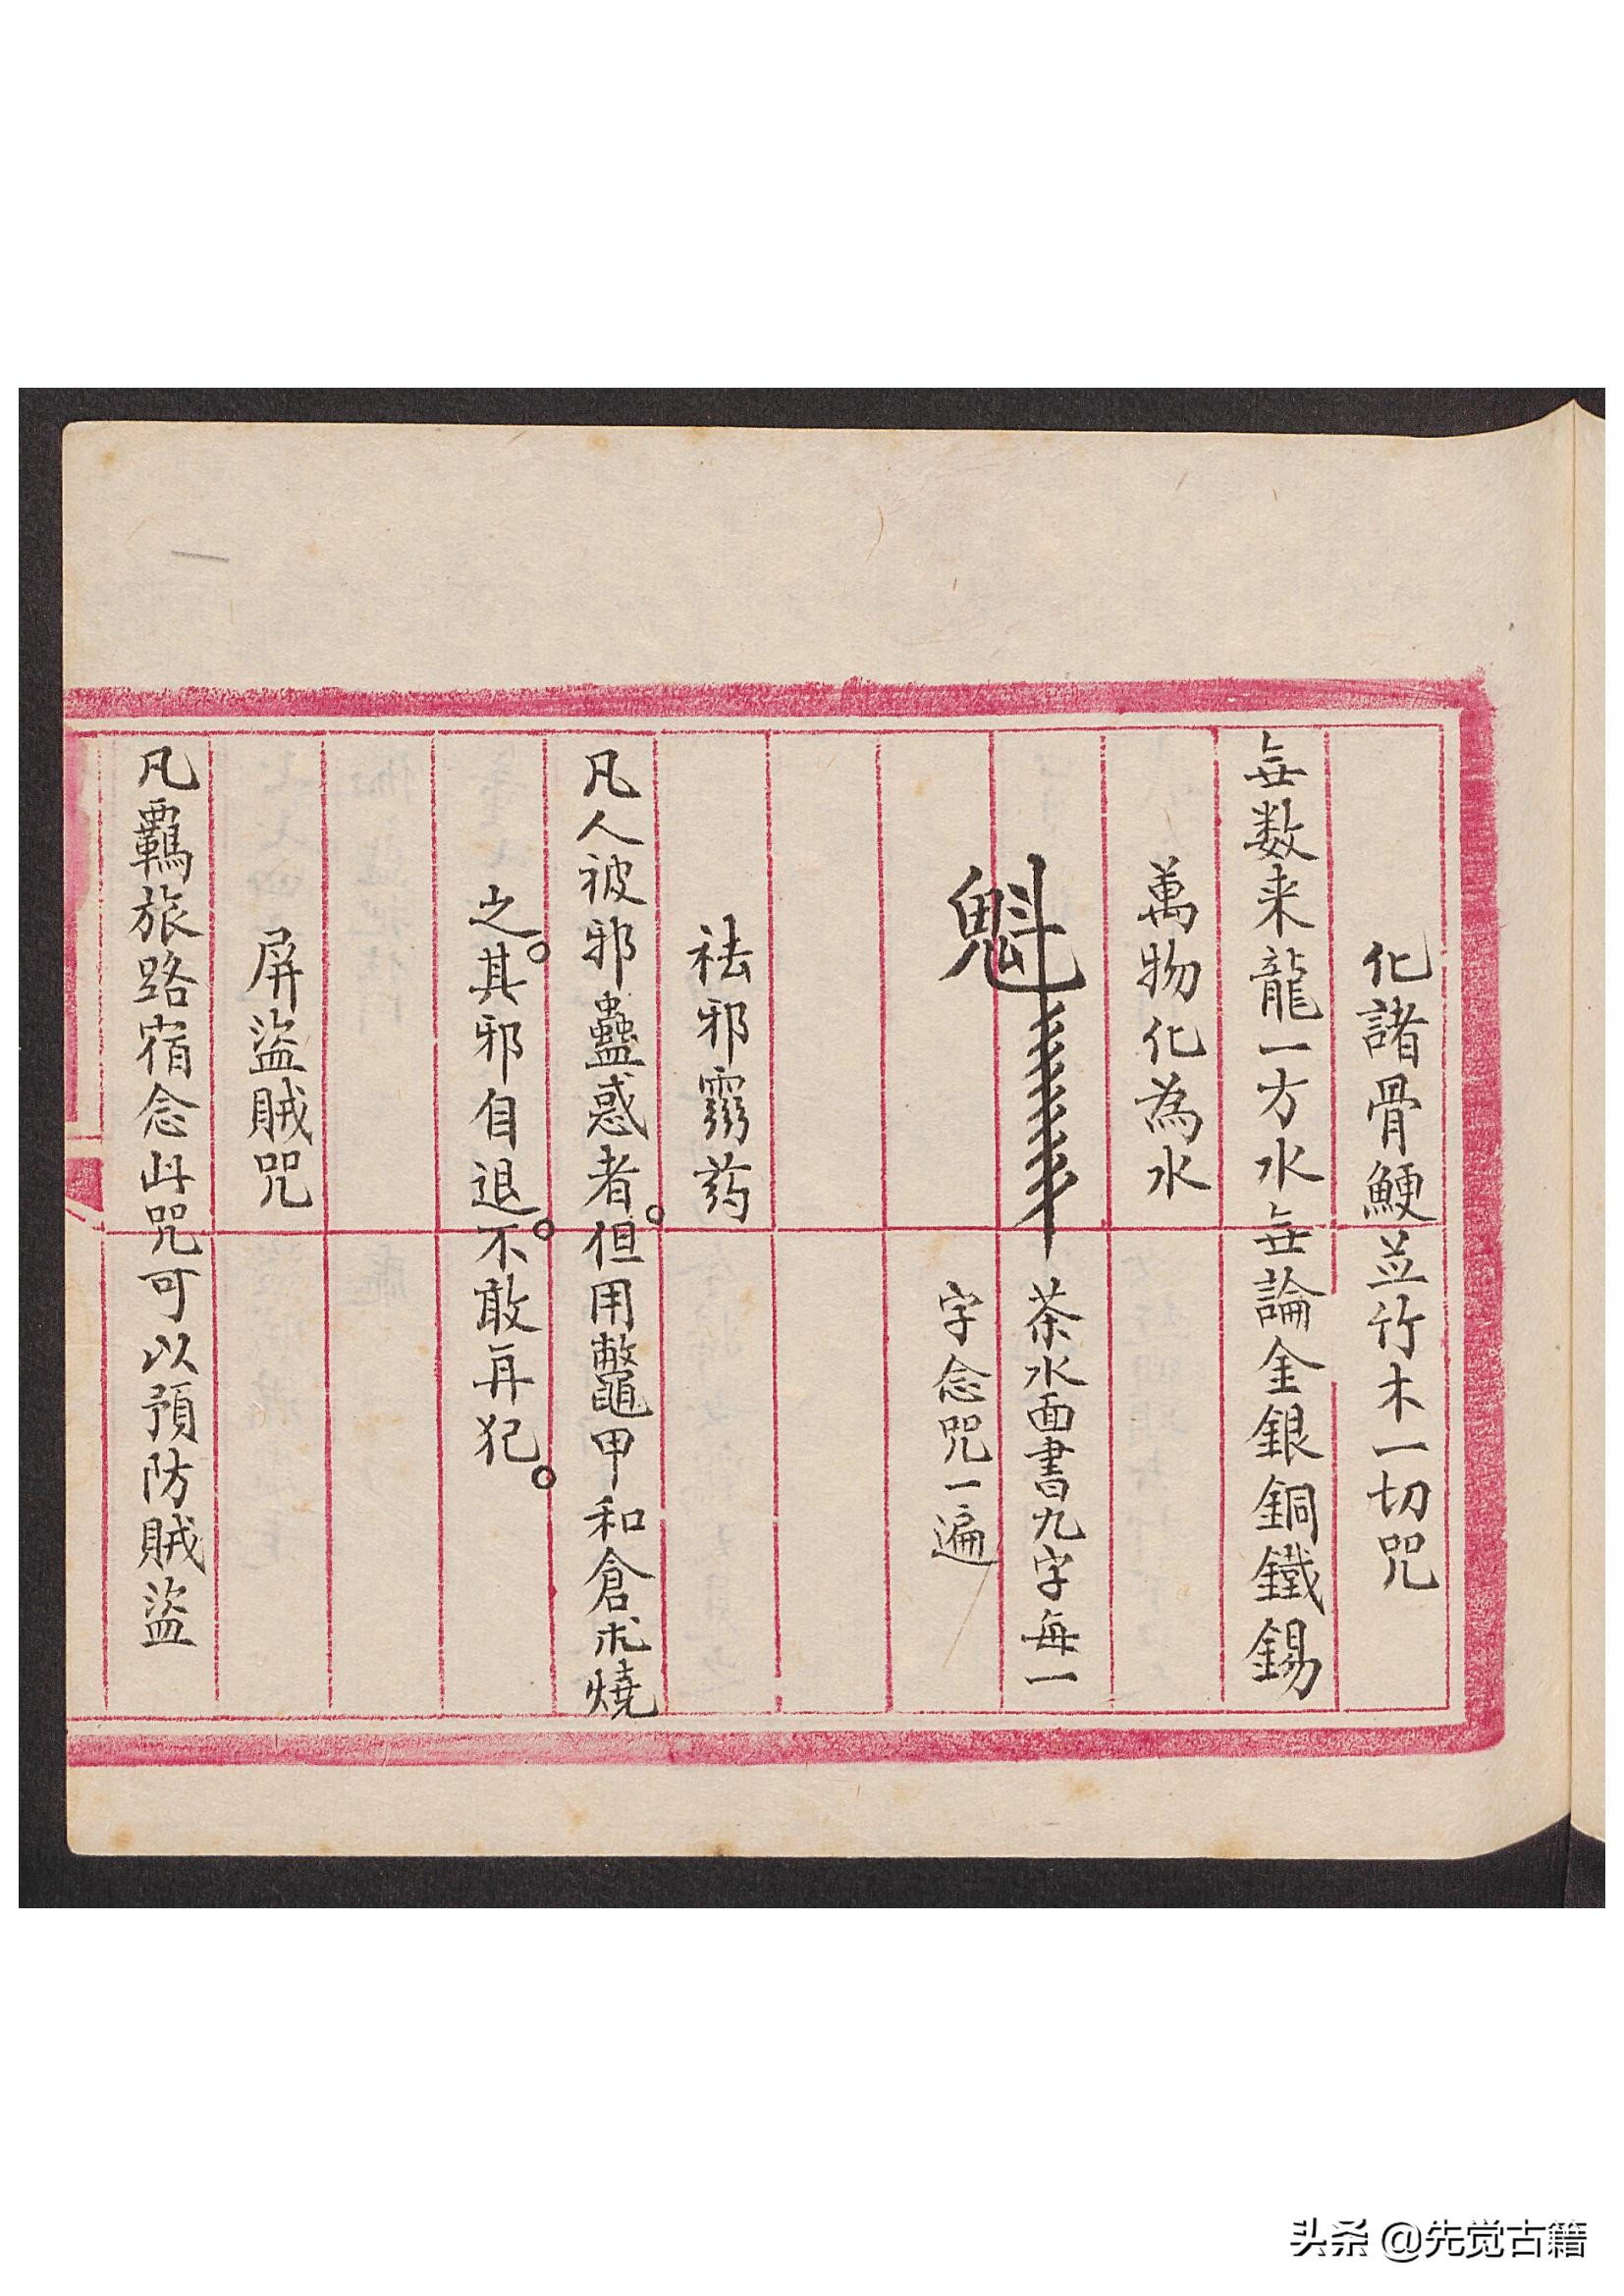 化諸骨鯁並竹木一切咒
無数来龍一方水無論金銀銅鐵錫
萬物化為水
魁
茶水面書九字每一
字念咒一遍
祛邪藥
凡人被邪蠱惑者。但用鼈甲和倉朮燒
之。其邪自退。不敢再犯。
屏盜賊咒
凡羈旅路宿念此咒可以預防賊盜
头条 @先觉古籍